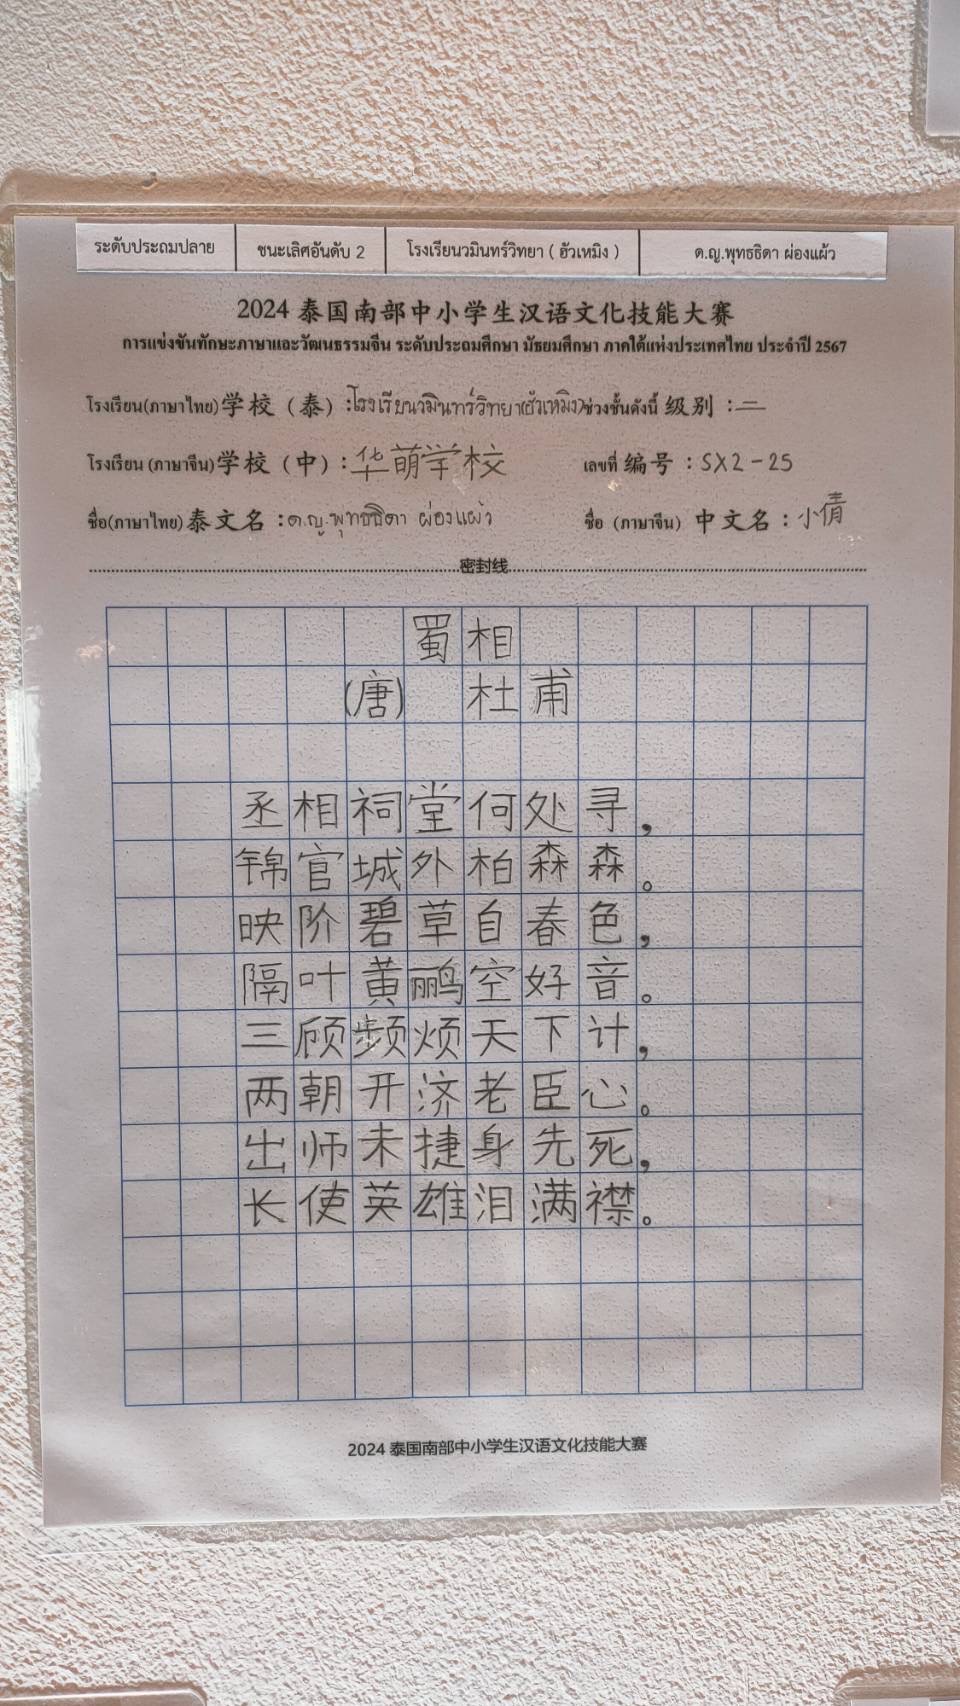 ระดับประถมปลาย ชนะเลิศอันดับ 2 โรงเรียนวมินทร์วิทยา ( ฮัวเหมิง ) ด.ญ.พุทธธิดา ผ่องแผ้ว
2024 泰国南部中小学生汉语文化技能大赛
การแข่งขันทักษะภาษาและวัฒนธรรมจีน ระดับประถมศึกษา มัธยมศึกษา ภาคใต้แห่งประเทศไทย ประจำปี 2567
โรงเรียน(ภาษาไทย)学校（泰）:โรงเรียนวมินทร์วิทยา(ฮัวเหมิง) ช่วงชั้นดังนี้ 级别：二
โรงเรียน (ภาษาจีน)学校（中）:华萌学校 เลขที่ 编号：SX2-25
ชื่อ(ภาษาไทย)泰文名：ด.ญ.พุทธธิดา ผ่องแผ้ว ชื่อ (ภาษาจีน) 中文名：小倩
密封线
蜀相
(唐) 杜甫
丞相祠堂何处寻，
锦官城外柏森森。
映阶碧草自春色，
隔叶黄鹂空好音。
三顾频烦天下计，
两朝开济老臣心。
出师未捷身先死，
长使英雄泪满襟。
2024 泰国南部中小学生汉语文化技能大赛